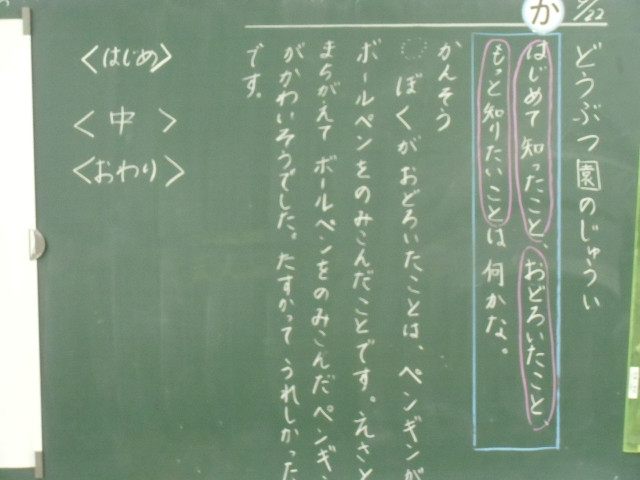 /22
か
どうぶつ園のじゅうい
はじめて知ったこと、おどろいたこと、
もっと知りたいことは何かな。
かんそう
ぼくがおどろいたことは、ペンギンが
ボールペンをのみこんだことです。えさと
まちがえてボールペンをのみこんだペンギン
がかわいそうでした。たすかってうれしかった
です。
<はじめ>
<中>
<おわり>